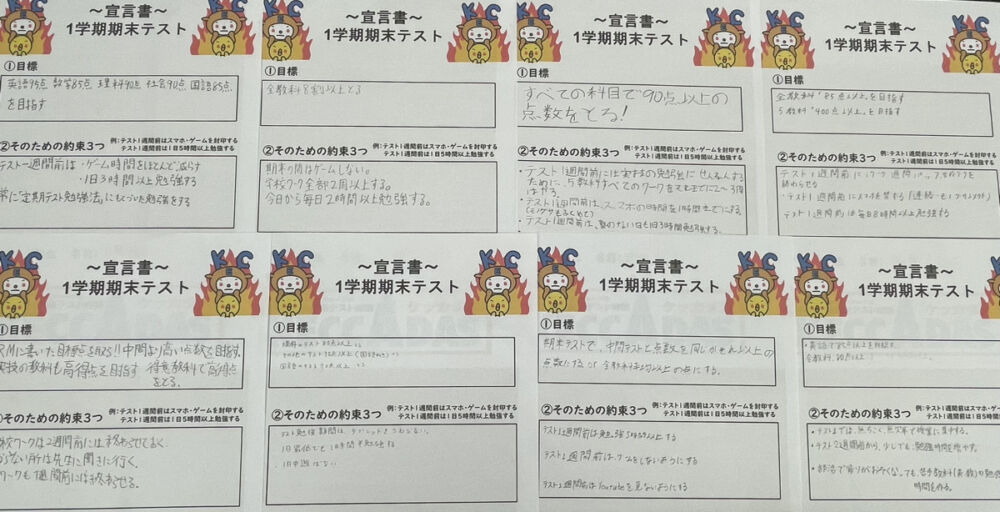 KC
～宣言書～
1学期期末テスト
①目標
英語95点 数学85点 理科90点 社会90点 国語85点
を目指す
②そのための約束3つ
例：テスト1週間前はスマホ・ゲームを封印する
テスト1週間前は1日5時間以上勉強する
テスト一週間前は・ゲーム時間をほとんど減らす
・1日3時間以上勉強する
常に"定期テスト勉強法"にもとづいた勉強をする
KC
～宣言書～
1学期期末テスト
①目標
全教科8割以上とる
②そのための約束3つ
例：テスト1週間前はスマホ・ゲームを封印する
テスト1週間前は1日5時間以上勉強する
期末の間はゲームしない。
学校ワーク全部2周以上する。
今日から毎日2時間以上勉強する。
KC
～宣言書～
1学期期末テスト
①目標
すべての科目で90点以上の
点数をとる!
②そのための約束3つ
例：テスト1週間前はスマホ・ゲームを封印する
テスト1週間前は1日5時間以上勉強する
・テスト1週間前には
ために、5教科すべてのワークを
・テスト1週間前は、スマホの時間を1時間までにする
・テスト1週間前は、塾のない日も1日3時間勉強する。
KC
～宣言書～
1学期期末テスト
①目標
全教科85点以上を目指す
5教科400点以上を目指す
②そのための約束3つ
例：テスト1週間前はスマホ・ゲームを封印する
テスト1週間前は1日5時間以上勉強する
テスト1週間前に
終わらせる
・テスト1週間前にスマホを
テスト1週間前は毎日8時間以上勉強する
KC
～宣言書～
1学期期末テスト
①目標
に書いた目標点を取る!!中間より高い点数を目指す。
実技の教科も高得点を目指す 得意教科で高得点
をとる。
②そのための約束3つ
例：テスト1週間前はスマホ・ゲームを封印する
テスト1週間前は1日5時間以上勉強する
学校ワークは2週間前には終わらせておく。
からない所は先生に聞きに行く。
ワークも1週間前には終わらせる。
KC
～宣言書～
1学期期末テスト
①目標
②そのための約束3つ
例：テスト1週間前はスマホ・ゲームを封印する
テスト1週間前は1日5時間以上勉強する
テスト勉強期間は、タブレットをさわらない。
1日最低でも1時間半勉強する
KC
～宣言書～
1学期期末テスト
①目標
期末テストで、中間テストと点数を同じかそれ以上の
点数にする or 全教科
以上の点にする。
②そのための約束3つ
例：テスト1週間前はスマホ・ゲームを封印する
テスト1週間前は1日5時間以上勉強する
テスト1週間前は勉強5時間以上する
テスト1週間前は
をしないようにする
テスト1週間前はYoutubeを見ないようにする
KC
～宣言書～
1学期期末テスト
①目標
・英語で85点以上を目指す
②そのための約束3つ
例：テスト1週間前はスマホ・ゲームを封印する
テスト1週間前は1日5時間以上勉強する
・テストまでは、
授業に集中する。
・テスト2週間前から、少しでも、勉強時間を増やす。
・部活で帰りがおそくなっても、苦手教科(英・数)の勉強
時間を作る。